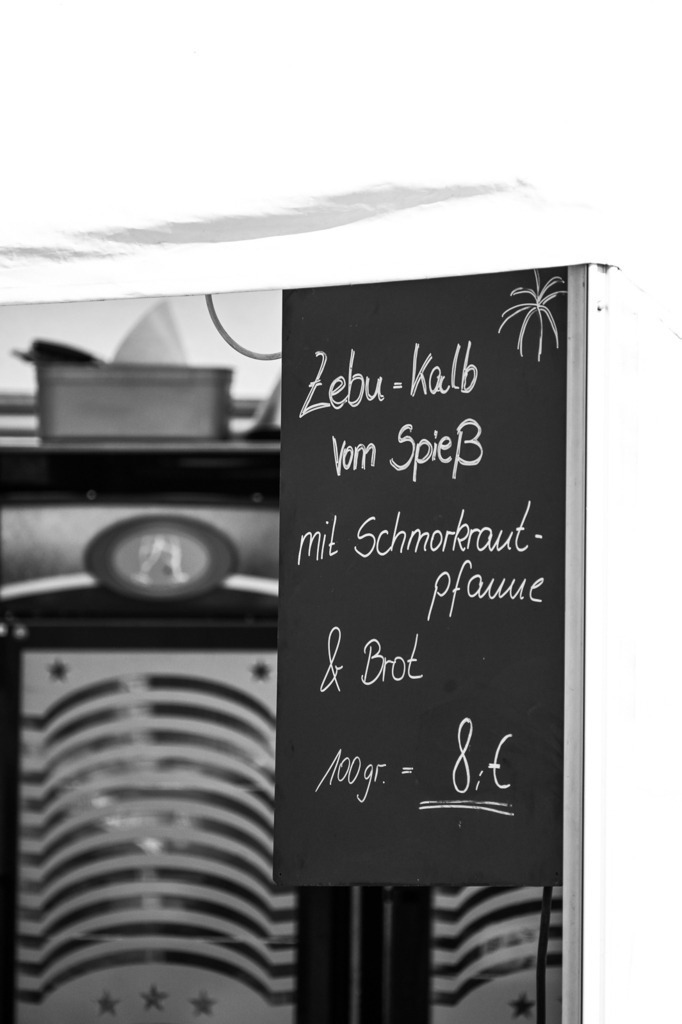 Zebu=Kalb
vom Spieß
mit Schmorkraut-
pfanne
& Brot
100gr. = 8,-€